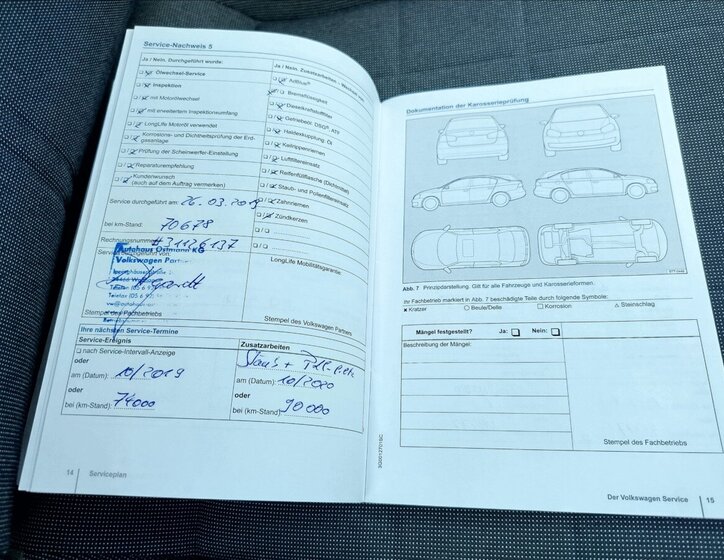 Service-Nachweis 5
Ja / Nein. Durchgeführt wurde:
Ölwechsel-Service
Inspektion
mit Motorölwechsel
mit erweitertem Inspektionsumfang
LongLife Motoröl verwendet
Korrosions- und Dichtheitsprüfung der Erd-
gasanlage
Prüfung der Scheinwerfer-Einstellung
Reparaturempfehlung
Kundenwunsch
(auch auf dem Auftrag vermerken)
Service durchgeführt am: 26.03.2019
bei km-Stand: 70678
Rechnungsnummer: #31126137
Autohaus Ostmann KG
Volkswagen Partner
Stempel des Fachbetriebs
Ja / Nein. Zusatzarbeiten
AdBlue®
Bremsflüssigkeit
Dieselkraftstofffilter
Getriebeöl: DSG®, ATF
Haldexkupplung: Öl
Keilrippenriemen
Luftfiltereinsatz
Reifenfüllflasche (Dichtmittel)
Staub- und Pollenfiltereinsatz
Zahnriemen
Zündkerzen
LongLife Mobilitätsgarantie
Stempel des Volkswagen Partners
Ihre nächsten Service-Termine
Service-Ereignis
nach Service-Intervall-Anzeige
oder
am (Datum): 10/2019
oder
bei (km-Stand): 74000
Zusatzarbeiten
Staub +
am (Datum): 10/2020
oder
bei (km-Stand): 90000
14 Serviceplan
Dokumentation der Karosserieprüfung
Abb. 7 Prinzipdarstellung. Gilt für alle Fahrzeuge und Karosserieformen.
Ihr Fachbetrieb markiert in Abb. 7 beschädigte Teile durch folgende Symbole:
x Kratzer ○ Beule/Delle □ Korrosion △ Steinschlag
Mängel festgestellt? Ja: Nein:
Beschreibung der Mängel:
Stempel des Fachbetriebs
Der Volkswagen Service 15